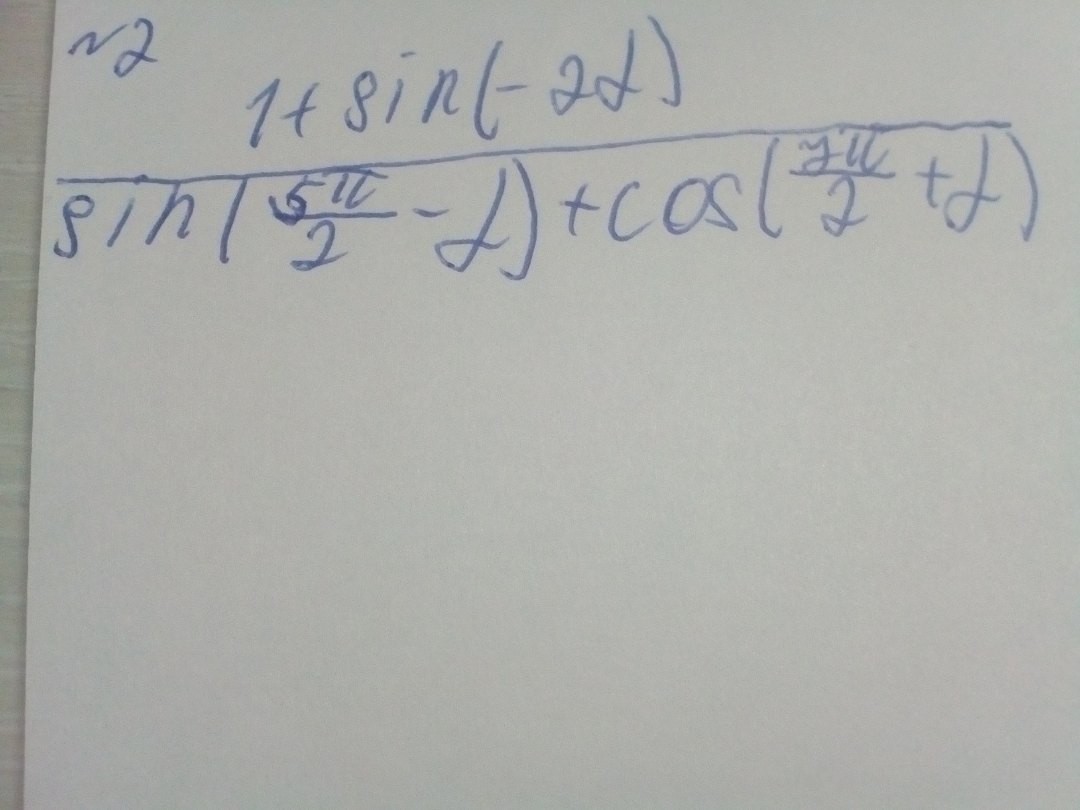 №2
1+sin(-2α)
sin(5π/2-α)+cos(7π/2+α)